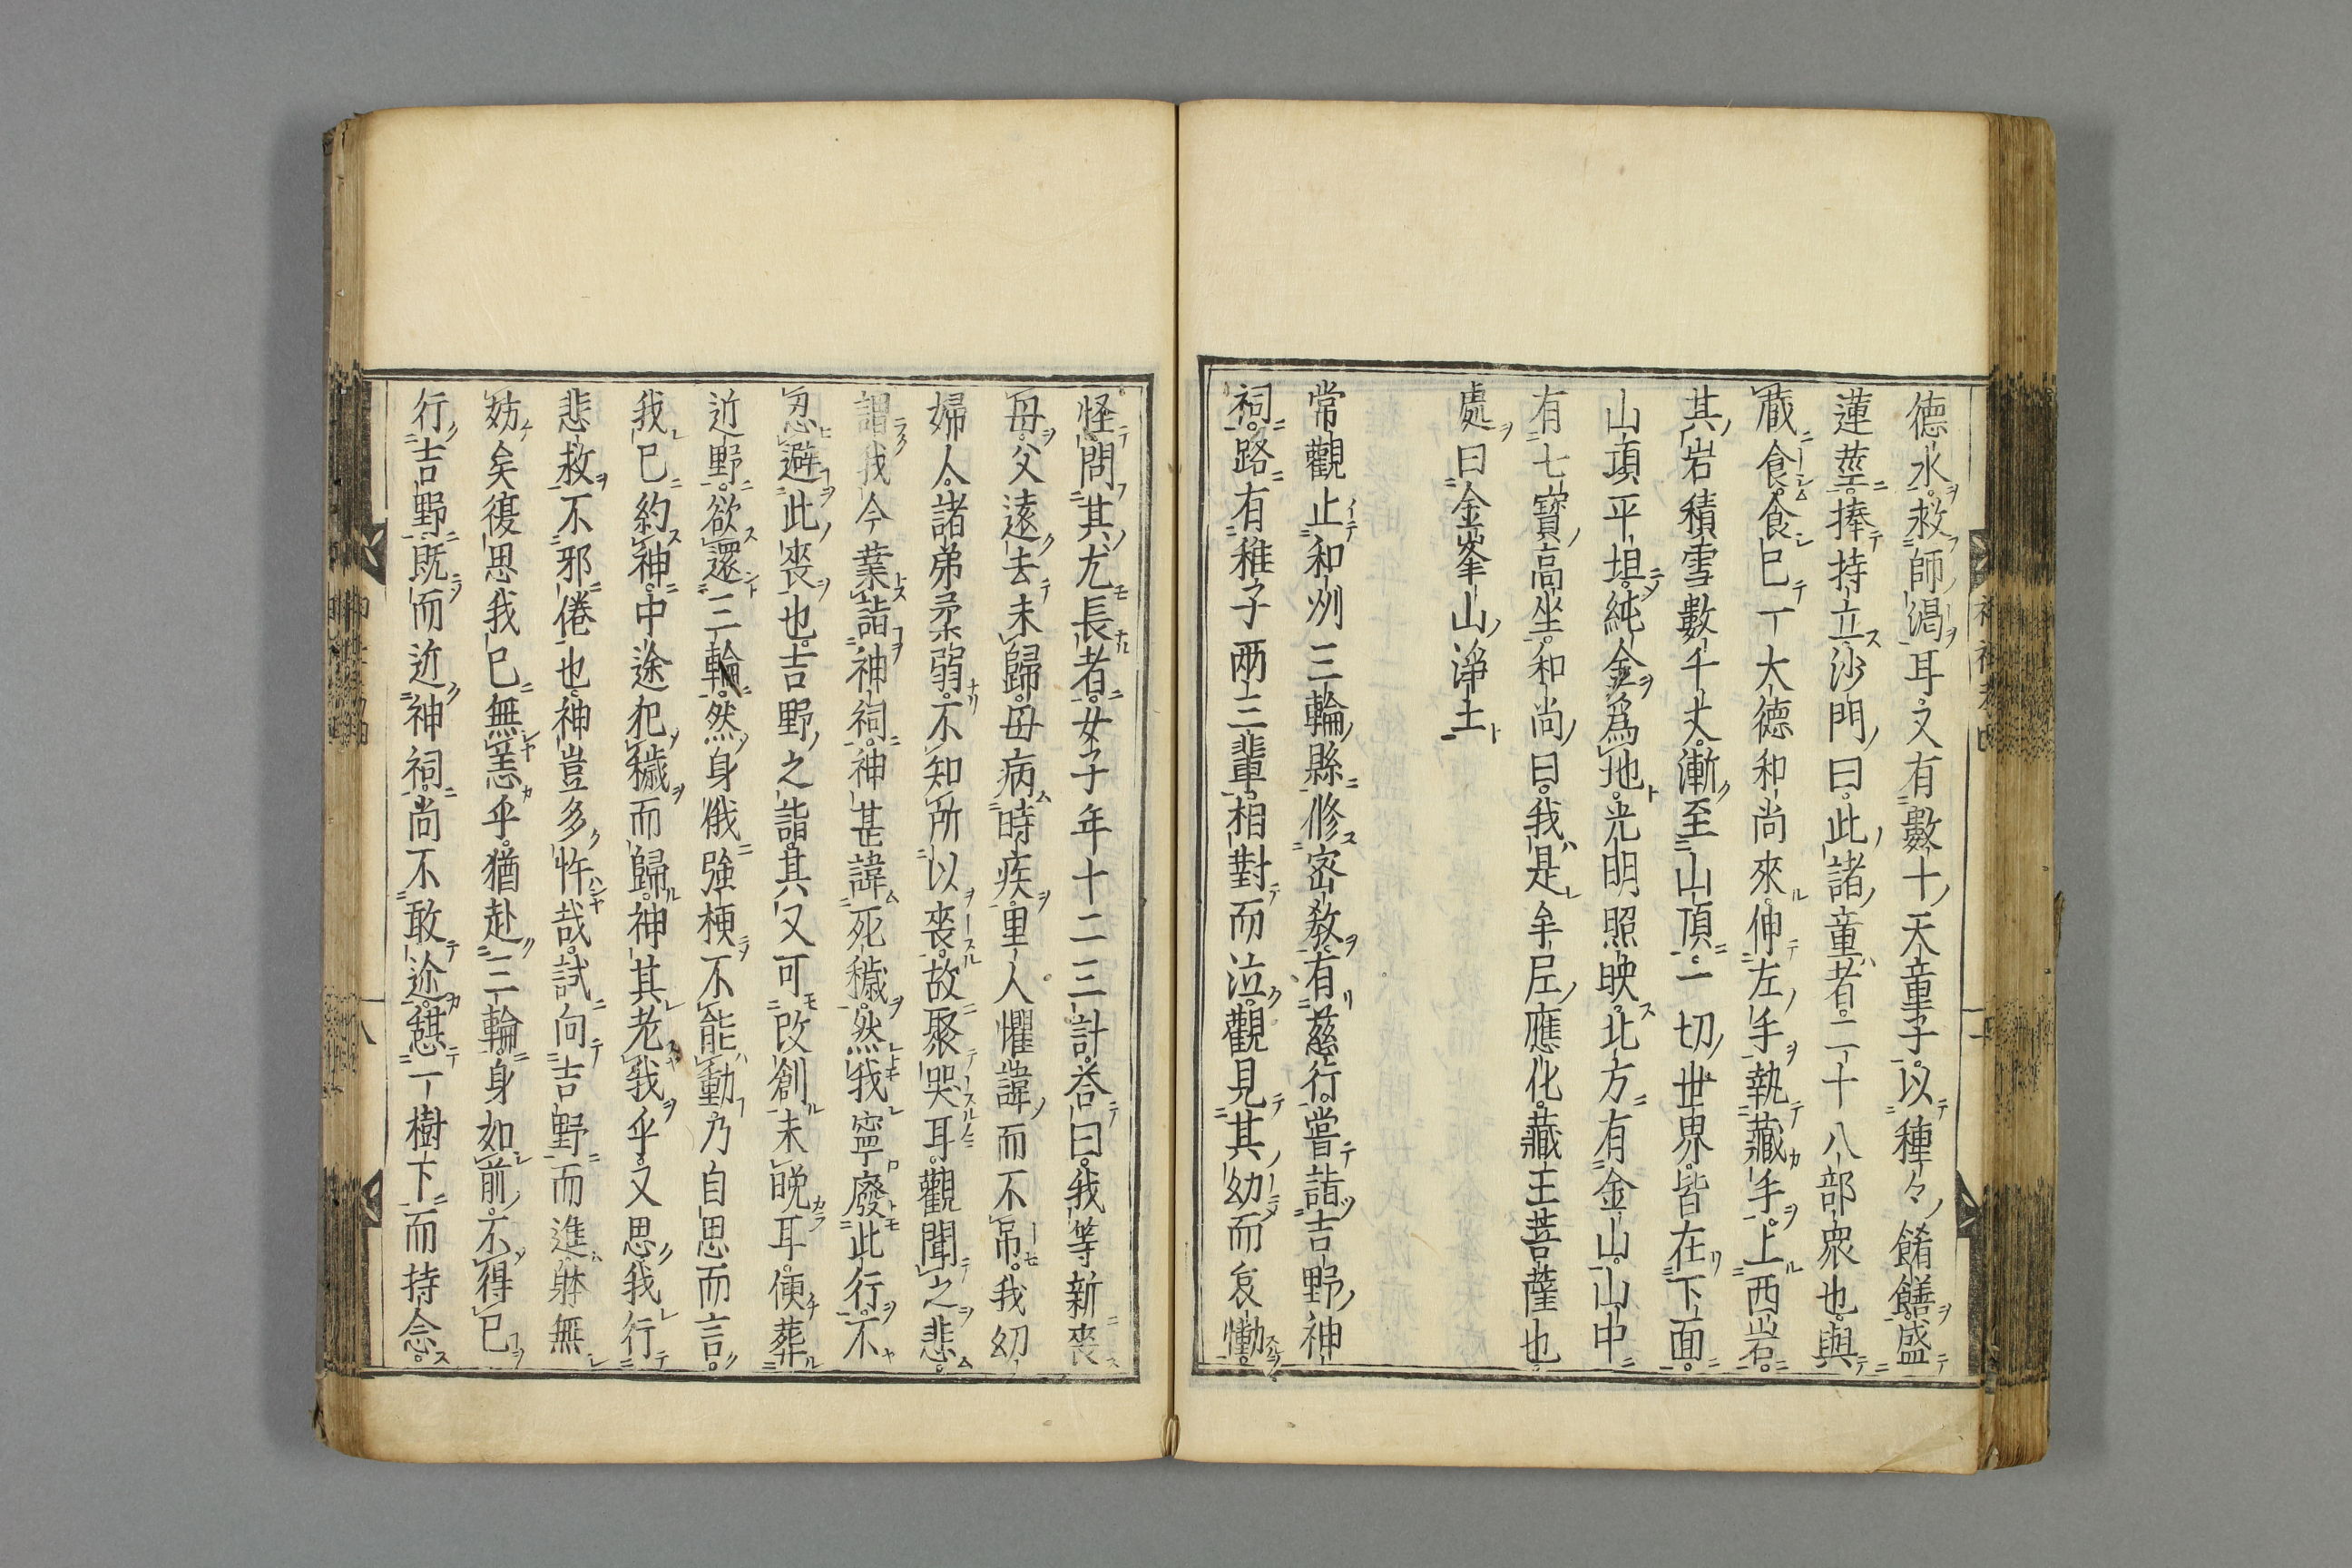 德水救師渇耳又有數十天童子以種々餚饍盛
蓮莖捧持立沙門曰此諸童者二十八部衆也與
蕆食食已一大德和尚來伸左手執藏手上西岩
其岩積雪數千丈漸至山頂一切世界皆在下面
山項平坦純金爲地光明照映北方有金山山中
有七寶高坐和尚曰我是牟尼應化藏王菩薩也
處曰金峯山淨土
常觀止和州三輪縣修密教有慈行嘗詣吉野神
祠路有稚子兩三輩相對而泣觀見其幼而哀慟
怪問其尤長者女子年十二三計荅曰我等新喪
母父遠去未歸母病時疾里人懼諱而不吊我幼
婦人諸弟柔弱不知所以喪故聚哭耳觀聞之悲
謂我今業詣神祠神甚諱死穢然我寧廢此行不
忍避此喪也吉野之詣其又可改創未晚耳便葬
近野欲還三輪然身俄強梗不能動乃自思而言
我已約神中途犯穢而歸神其老我乎又思我行
悲救不邪倦也神豈多忤哉試向吉野而進躰無
妨矣復思我已無恙乎猶赴三輪身如前不得已
行吉野既而近神祠尚不敢迩憇一樹下而持念